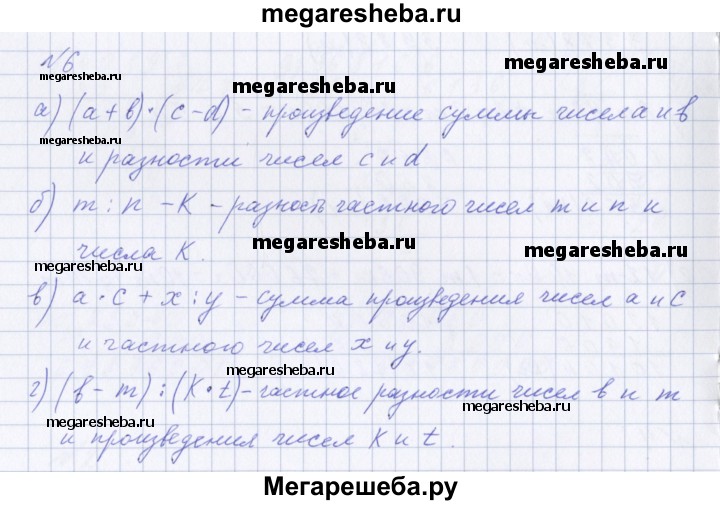 megaresheba.ru
№6
megaresheba.ru
megaresheba.ru
megaresheba.ru
а) (a+b)·(c-d) - произведение суммы чисел a и b
megaresheba.ru
и разности чисел c и d
б) m : n - K - разность частного чисел m и n и
числа K.
megaresheba.ru
megaresheba.ru
megaresheba.ru
в) a·c + x : y - сумма произведения чисел a и c
и частного чисел x и y.
megaresheba.ru
г) (b-m) : (K·t) - частное разности чисел b и m
megaresheba.ru
и произведения чисел K и t.
Мегарешеба.ру